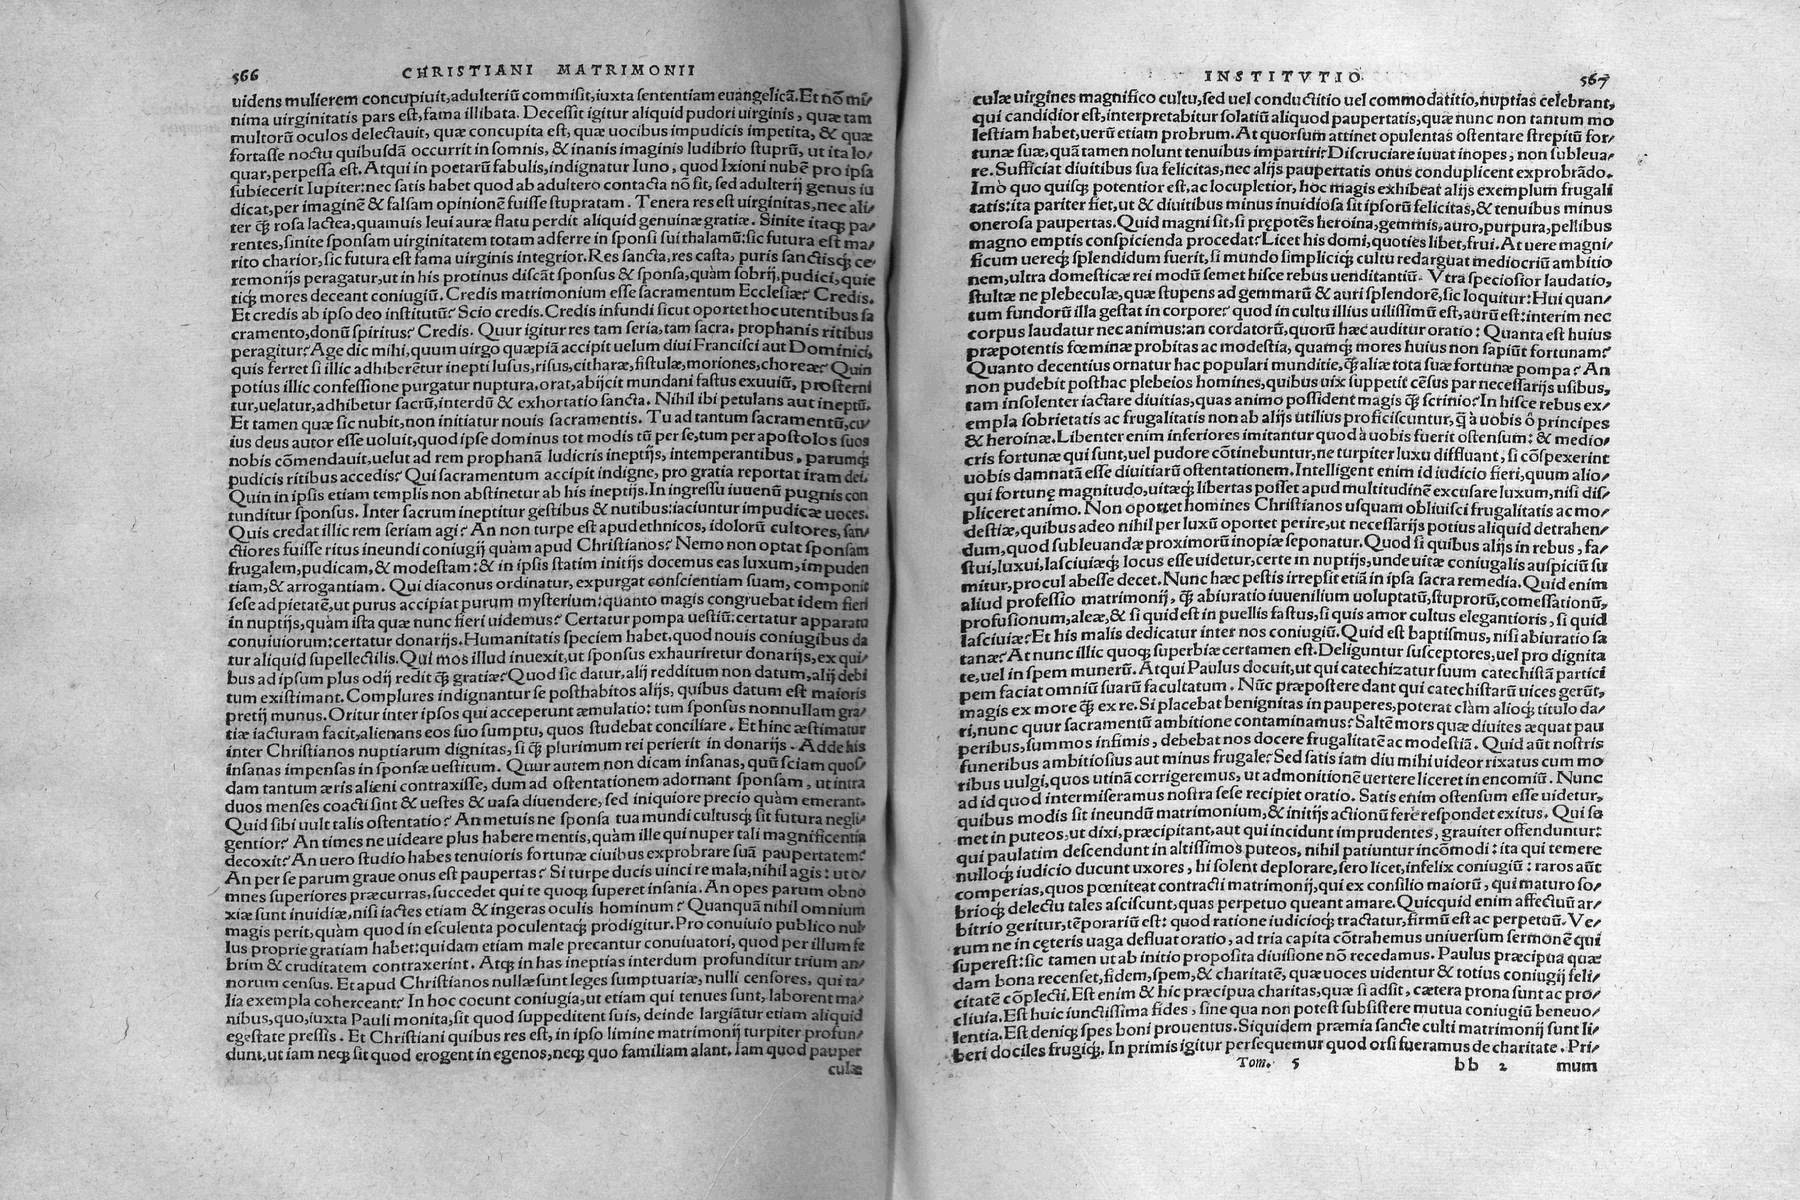 566 CHRISTIANI MATRIMONII
uidens mulierem concupiuit, adulteriũ commisit, iuxta sententiam euangelicã. Et nõ mi/
nima uirginitatis pars est, fama illibata. Decessit igitur aliquid pudori uirginis, quæ tam
multorũ oculos delectauit, quæ concupita est, quæ uocibus impudicis impetita, & quæ
fortasse noctu quibusdã occurrit in somnis, & inanis imaginis ludibrio stuprũ, ut ita lo/
quar, perpessa est. Atqui in poetarũ fabulis, indignatur Iuno, quod Ixioni nubẽ pro ipsa
subiecerit Iupiter: nec satis habet quod ab adultero contacta nõ sit, sed adulterij genus iu
dicat, per imaginẽ & falsam opinionẽ fuisse stupratam. Tenera res est uirginitas, nec ali/
ter q̃ rosa lactea, quamuis leui auræ flatu perdit aliquid genuinæ gratiæ. Sinite itaq; pa/
rentes, sinite sponsam uirginitatem totam adferre in sponsi sui thalamũ: sic futura est ma/
rito charior, sic futura est fama uirginis integrior. Res sancta, res casta, puris sanctisq; ce/
remonijs peragatur, ut in his protinus discãt sponsus & sponsa, quàm sobrij, pudici, quie
tiq; mores deceant coniugiũ. Credis matrimonium esse sacramentum Ecclesiæ? Credis.
Et credis ab ipso deo institutũ? Scio credis. Credis infundi sicut oportet hoc utentibus sa
cramento, donũ spiritus? Credis. Quur igitur res tam seria, tam sacra, prophanis ritibus
peragitur? Age dic mihi, quum uirgo quæpiã accipit uelum diui Francisci aut Dominici,
quis ferret si illic adhiberẽtur inepti lusus, risus, citharæ, fistulæ, moriones, choreæ? Quin
potius illic confessione purgatur nuptura, orat, abijcit mundani fastus exuuiũ, prosterni
tur, uelatur, adhibetur sacrũ, interdũ & exhortatio sancta. Nihil ibi petulans aut ineptũ.
Et tamen quæ sic nubit, non initiatur nouis sacramentis. Tu ad tantum sacramentũ, cu/
ius deus autor esse uoluit, quod ipse dominus tot modis tũ per se, tum per apostolos suos
nobis cõmendauit, uelut ad rem prophanã ludicris ineptijs, intemperantibus, parumq;
pudicis ritibus accedis? Qui sacramentum accipit indigne, pro gratia reportat iram dei.
Quin in ipsis etiam templis non abstinetur ab his ineptijs. In ingressu iuuenũ pugnis con
tunditur sponsus. Inter sacrum ineptitur gestibus & nutibus: iaciuntur impudicæ uoces.
Quis credat illic rem seriam agi? An non turpe est apud ethnicos, idolorũ cultores, san/
ctiores fuisse ritus ineundi coniugij quàm apud Christianos? Nemo non optat sponsam
frugalem, pudicam, & modestam: & in ipsis statim initijs docemus eas luxum, impuden
tiam, & arrogantiam. Qui diaconus ordinatur, expurgat conscientiam suam, componit
sese ad pietatẽ, ut purus accipiat purum mysterium: quanto magis congruebat idem fieri
in nuptijs, quàm ista quæ nunc fieri uidemus? Certatur pompa uestiũ: certatur apparatu
conuiuiorum: certatur donarijs. Humanitatis speciem habet, quod nouis coniugibus da
tur aliquid supellectilis. Qui mos illud inuexit, ut sponsus exhauriretur donarijs, ex qui/
bus ad ipsum plus odij redit q̃ gratiæ? Quod sic datur, alij redditum non datum, alij debi
tum existimant. Complures indignantur se posthabitos alijs, quibus datum est maioris
pretij munus. Oritur inter ipsos qui acceperunt æmulatio: tum sponsus nonnullam gra/
tiæ iacturam facit, alienans eos suo sumptu, quos studebat conciliare. Et hinc æstimatur
inter Christianos nuptiarum dignitas, si q̃ plurimum rei perierit in donarijs. Adde his
insanas impensas in sponsæ uestitum. Quur autem non dicam insanas, quũ sciam quos/
dam tantum æris alieni contraxisse, dum ad ostentationem adornant sponsam, ut intra
duos menses coacti sint & uestes & uasa diuendere, sed iniquiore precio quàm emerant.
Quid sibi uult talis ostentatio? An metuis ne sponsa tua mundi cultusq; sit futura negli/
gentior? An times ne uideare plus habere mentis, quàm ille qui nuper tali magnificentia
decoxit? An uero studio habes tenuioris fortunæ ciuibus exprobrare suã paupertatem?
An per se parum graue onus est paupertas? Si turpe ducis uinci re mala, nihil agis: ut o/
mnes superiores præcurras, succedet qui te quoq; superet insania. An opes parum obno
xiæ sunt inuidiæ, nisi iactes etiam & ingeras oculis hominum? Quanquã nihil omnium
magis perit, quàm quod in esculenta poculentaq; prodigitur. Pro conuiuio publico nul/
lus proprie gratiam habet: quidam etiam male precantur conuiuatori, quod per illum fe
brim & cruditatem contraxerint. Atq; in has ineptias interdum profunditur trium an/
norum census. Et apud Christianos nullæ sunt leges sumptuariæ, nulli censores, qui ta/
lia exempla coherceant? In hoc coeunt coniugia, ut etiam qui tenues sunt, laborent ma/
nibus, quo, iuxta Pauli monita, sit quod suppeditent suis, deinde largiãtur etiam aliquid
egestate pressis. Et Christiani quibus res est, in ipso limine matrimonij turpiter profun/
dunt, ut iam neq; sit quod erogent in egenos, neq; quo familiam alant. Iam quod pauper
culæ
INSTITVTIO 567
culæ uirgines magnifico cultu, sed uel conductitio uel commodatitio, nuptias celebrant,
qui candidior est, interpretabitur solatiũ aliquod paupertatis, quæ nunc non tantum mo
lestiam habet, uerũ etiam probrum. At quorsum attinet opulentas ostentare strepitũ for/
tunæ suæ, quã tamen nolunt tenuibus impartiri? Discruciare iuuat inopes, non subleua/
re. Sufficiat diuitibus sua felicitas, nec alijs paupertatis onus conduplicent exprobrãdo.
Imò quo quisq; potentior est, ac locupletior, hoc magis exhibeat alijs exemplum frugali
tatis: ita pariter fiet, ut & diuitibus minus inuidiosa sit ipsorũ felicitas, & tenuibus minus
onerosa paupertas. Quid magni sit, si prępotẽs heroina, gemmis, auro, purpura, pellibus
magno emptis conspicienda procedat? Licet his domi, quoties libet, frui. At uere magni/
ficum uereq; splendidum fuerit, si mundo simpliciq; cultu redarguat mediocriũ ambitio
nem, ultra domesticæ rei modũ semet hisce rebus uenditantiũ. Vtra speciosior laudatio,
stultæ ne plebeculæ, quæ stupens ad gemmarũ & auri splendorẽ, sic loquitur: Hui quan/
tum fundorũ illa gestat in corpore? quod in cultu illius uilissimũ est, aurũ est: interim nec
corpus laudatur nec animus: an cordatorũ, quorũ hæc auditur oratio: Quanta est huius
præpotentis fœminæ probitas ac modestia, quamq; mores huius non sapiũt fortunam?
Quanto decentius ornatur hac populari munditie, q̃ aliæ tota suæ fortunæ pompa? An
non pudebit posthac plebeios homines, quibus uix suppetit cẽsus par necessarijs usibus,
tam insolenter iactare diuitias, quas animo possident magis q̃ scrinio? In hisce rebus ex/
empla sobrietatis ac frugalitatis non ab alijs utilius proficiscuntur, q̃ à uobis ô principes
& heroinæ. Libenter enim inferiores imitantur quod à uobis fuerit ostensum: & medio/
cris fortunæ qui sunt, uel pudore cõtinebuntur, ne turpiter luxu diffluant, si cõspexerint
uobis damnatã esse diuitiarũ ostentationem. Intelligent enim id iudicio fieri, quum alio/
qui fortunę magnitudo, uitæq; libertas posset apud multitudinẽ excusare luxum, nisi dis/
pliceret animo. Non oportet homines Christianos usquam obliuisci frugalitatis ac mo/
destiæ, quibus adeo nihil per luxũ oportet perire, ut necessarijs potius aliquid detrahen/
dum, quod subleuandæ proximorũ inopiæ seponatur. Quod si quibus alijs in rebus, fa/
stui, luxui, lasciuiæq; locus esse uidetur, certe in nuptijs, unde uitæ coniugalis auspiciũ su
mitur, procul abesse decet. Nunc hæc pestis irrepsit etiã in ipsa sacra remedia. Quid enim
aliud professio matrimonij, q̃ abiuratio iuuenilium uoluptatũ, stuprorũ, comessationũ,
profusionum, aleæ, & si quid est in puellis fastus, si quis amor cultus elegantioris, si quid
lasciuiæ? Et his malis dedicatur inter nos coniugiũ. Quid est baptismus, nisi abiuratio sa
tanæ? At nunc illic quoq; superbiæ certamen est. Deliguntur susceptores, uel pro dignita
te, uel in spem munerũ. Atqui Paulus docuit, ut qui catechizatur suum catechistã partici
pem faciat omniũ suarũ facultatum. Nũc præpostere dant qui catechistarũ uices gerũt,
magis ex more q̃ ex re. Si placebat benignitas in pauperes, poterat clàm alioq; titulo da/
ri, nunc quur sacramentũ ambitione contaminamus? Saltẽ mors quæ diuites æquat pau
peribus, summos infimis, debebat nos docere frugalitatẽ ac modestiã. Quid aũt nostris
funeribus ambitiosius aut minus frugale? Sed satis iam diu mihi uideor rixatus cum mo
ribus uulgi, quos utinã corrigeremus, ut admonitionẽ uertere liceret in encomiũ. Nunc
ad id quod intermiseramus nostra sese recipiet oratio. Satis enim ostensum esse uidetur,
quibus modis sit ineundũ matrimonium, & initijs actionũ ferè respondet exitus. Qui se
met in puteos, ut dixi, præcipitant, aut qui incidunt imprudentes, grauiter offenduntur:
qui paulatim descendunt in altissimos puteos, nihil patiuntur incõmodi: ita qui temere
nulloq; iudicio ducunt uxores, hi solent deplorare, sero licet, infelix coniugiũ: raros aũt
comperias, quos pœniteat contracti matrimonij, qui ex consilio maiorũ, qui maturo so/
brioq; delectu tales asciscunt, quas perpetuo queant amare. Quicquid enim affectuũ ar/
bitrio geritur, tẽporariũ est: quod ratione iudicioq; tractatur, firmũ est ac perpetuũ. Ve/
rum ne in cęteris uaga defluat oratio, ad tria capita cõtrahemus uniuersum sermonẽ qui
superest: sic tamen ut ab initio proposita diuisione nõ recedamus. Paulus præcipua quæ
dam bona recenset, fidem, spem, & charitatẽ, quæ uoces uidentur & totius coniugij feli/
citatẽ cõplecti. Est enim & hic præcipua charitas, quæ si adsit, cætera prona sunt ac pro/
cliuia. Est huic iunctissima fides, sine qua non potest subsistere mutua coniugiũ beneuo/
lentia. Est deniq; spes boni prouentus. Siquidem præmia sancte culti matrimonij sunt li/
beri dociles frugiq;. In primis igitur persequemur quod orsi fueramus de charitate. Pri/
Tom. 5 bb 2 mum